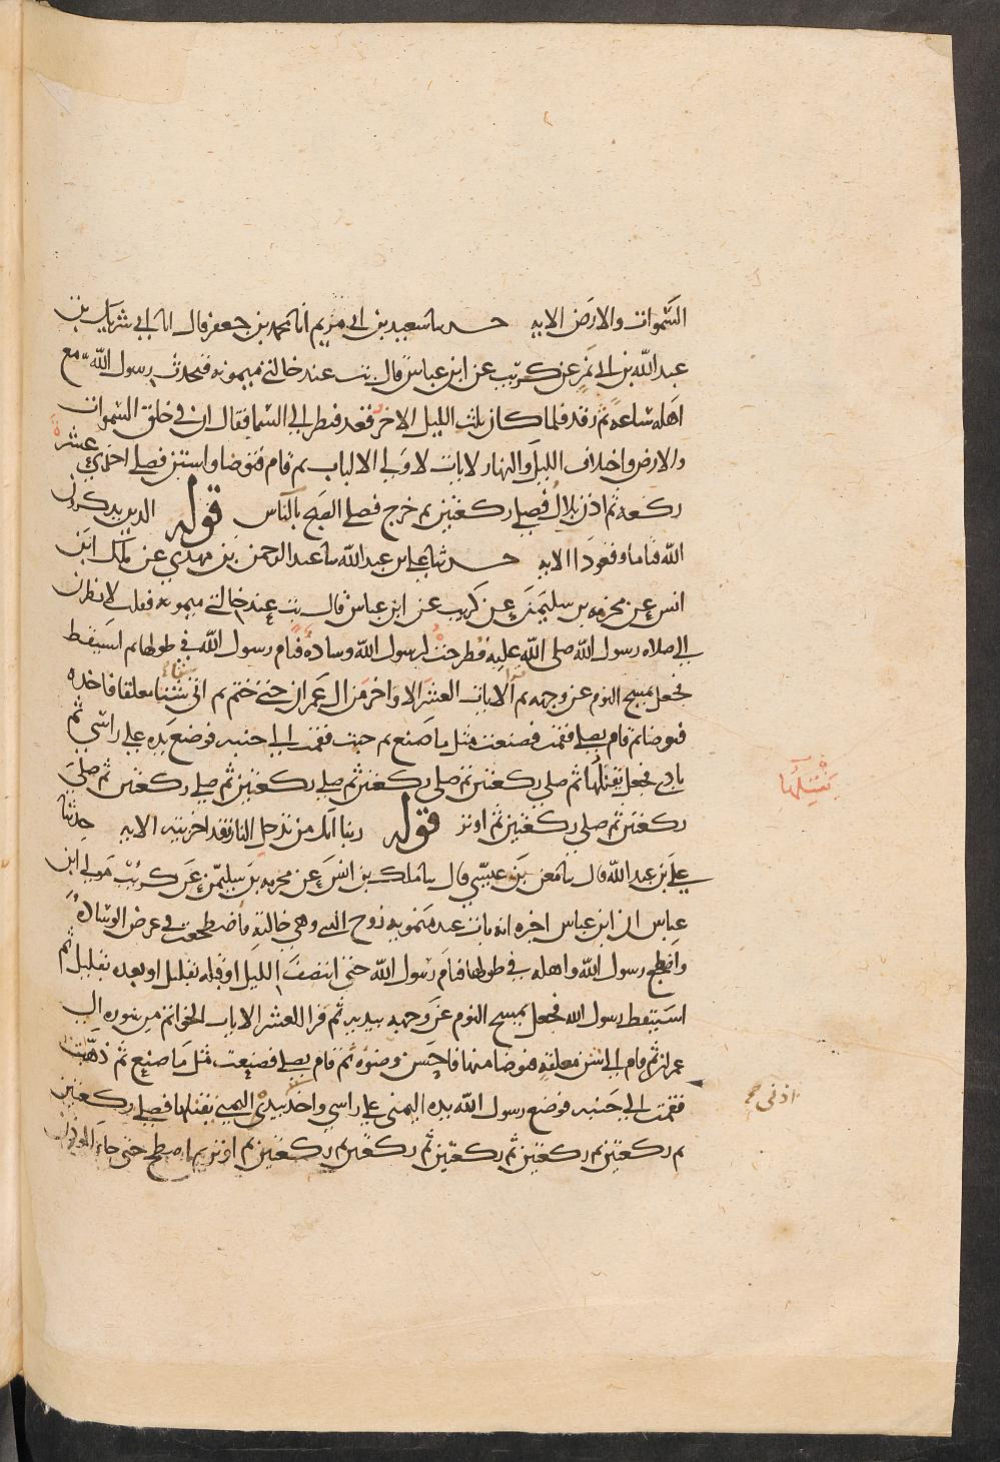 السموات والارض الايه حدثنا سعيد بن ابي مريم انا محمد بن جعفر قال انا ابي شريك بن
عبد الله بن ابي نمر عن كريب عن ابن عباس قال بت عند خالتي ميمونه فتحدث رسول الله مع
اهله ساعة ثم رقد فلما كان ثلث الليل الاخر قعد فنظر الى السما فقال ان في خلق السموات
والارض واختلاف الليل والنهار لايات لاولي الالباب ثم قام فتوضا واستن فصلى احدى عشرة
ركعه ثم اذن بلال فصلى ركعتين ثم خرج فصلى الصبح بالناس قوله الذين يذكرون
الله قياما وقعودا الايه حدثنا علي بن عبد الله نا عبد الرحمن بن مهدي عن ملك ابن
انس عن مخرمه بن سليمن عن كريب عن ابن عباس قال بت عند خالتي ميمونه فقلت لانظرن
الى صلاه رسول الله صلى الله عليه فطرحت لرسول الله وسادة فنام رسول الله في طولها ثم استيقظ
فجعل يمسح النوم عن وجهه ثم قرا الايات العشر الاواخر من ال عمران حتى ختم ثم اتى شنا معلقا فاخذه
فتوضا ثم قام يصلي فقمت فصنعت مثل ما صنع ثم جيت فقمت الى جنبه فوضع يده على راسي ثم
باذني فجعل يفتلها ثم صلى ركعتين ثم صلى ركعتين ثم صلى ركعتين ثم صلى ركعتين ثم صلى
ركعتين ثم صلى ركعتين ثم اوتر قوله ربنا انك من تدخل النار فقد اخزيته الايه حدثنا
علي بن عبد الله قال نا معن بن عيسى قال نا ملك بن انس عن مخرمه بن سليمن عن كريب مولى ابن
عباس ان ابن عباس اخبره انه بات عند ميمونه زوج النبي وهي خالته فاضطجعت في عرض الوسادة
واضطجع رسول الله واهله في طولها فنام رسول الله حتى انتصف الليل او قبله بقليل او بعده بقليل ثم
استيقظ رسول الله فجعل يمسح النوم عن وجهه بيديه ثم قرا العشر الايات الخواتم من سوره ال
عمرن ثم قام الى شن معلقه فتوضا منها فاحسن وضوءه ثم قام يصلي فصنعت مثل ما صنع ثم ذهبت
فقمت الى جنبه فوضع رسول الله يده اليمنى على راسي واخذ بيده اليمنى يفتلها فصلى ركعتين
ثم ركعتين ثم ركعتين ثم ركعتين ثم ركعتين ثم ركعتين ثم اوتر ثم اضطجع حتى جاءه الموذن
يفتلها
اذني صح